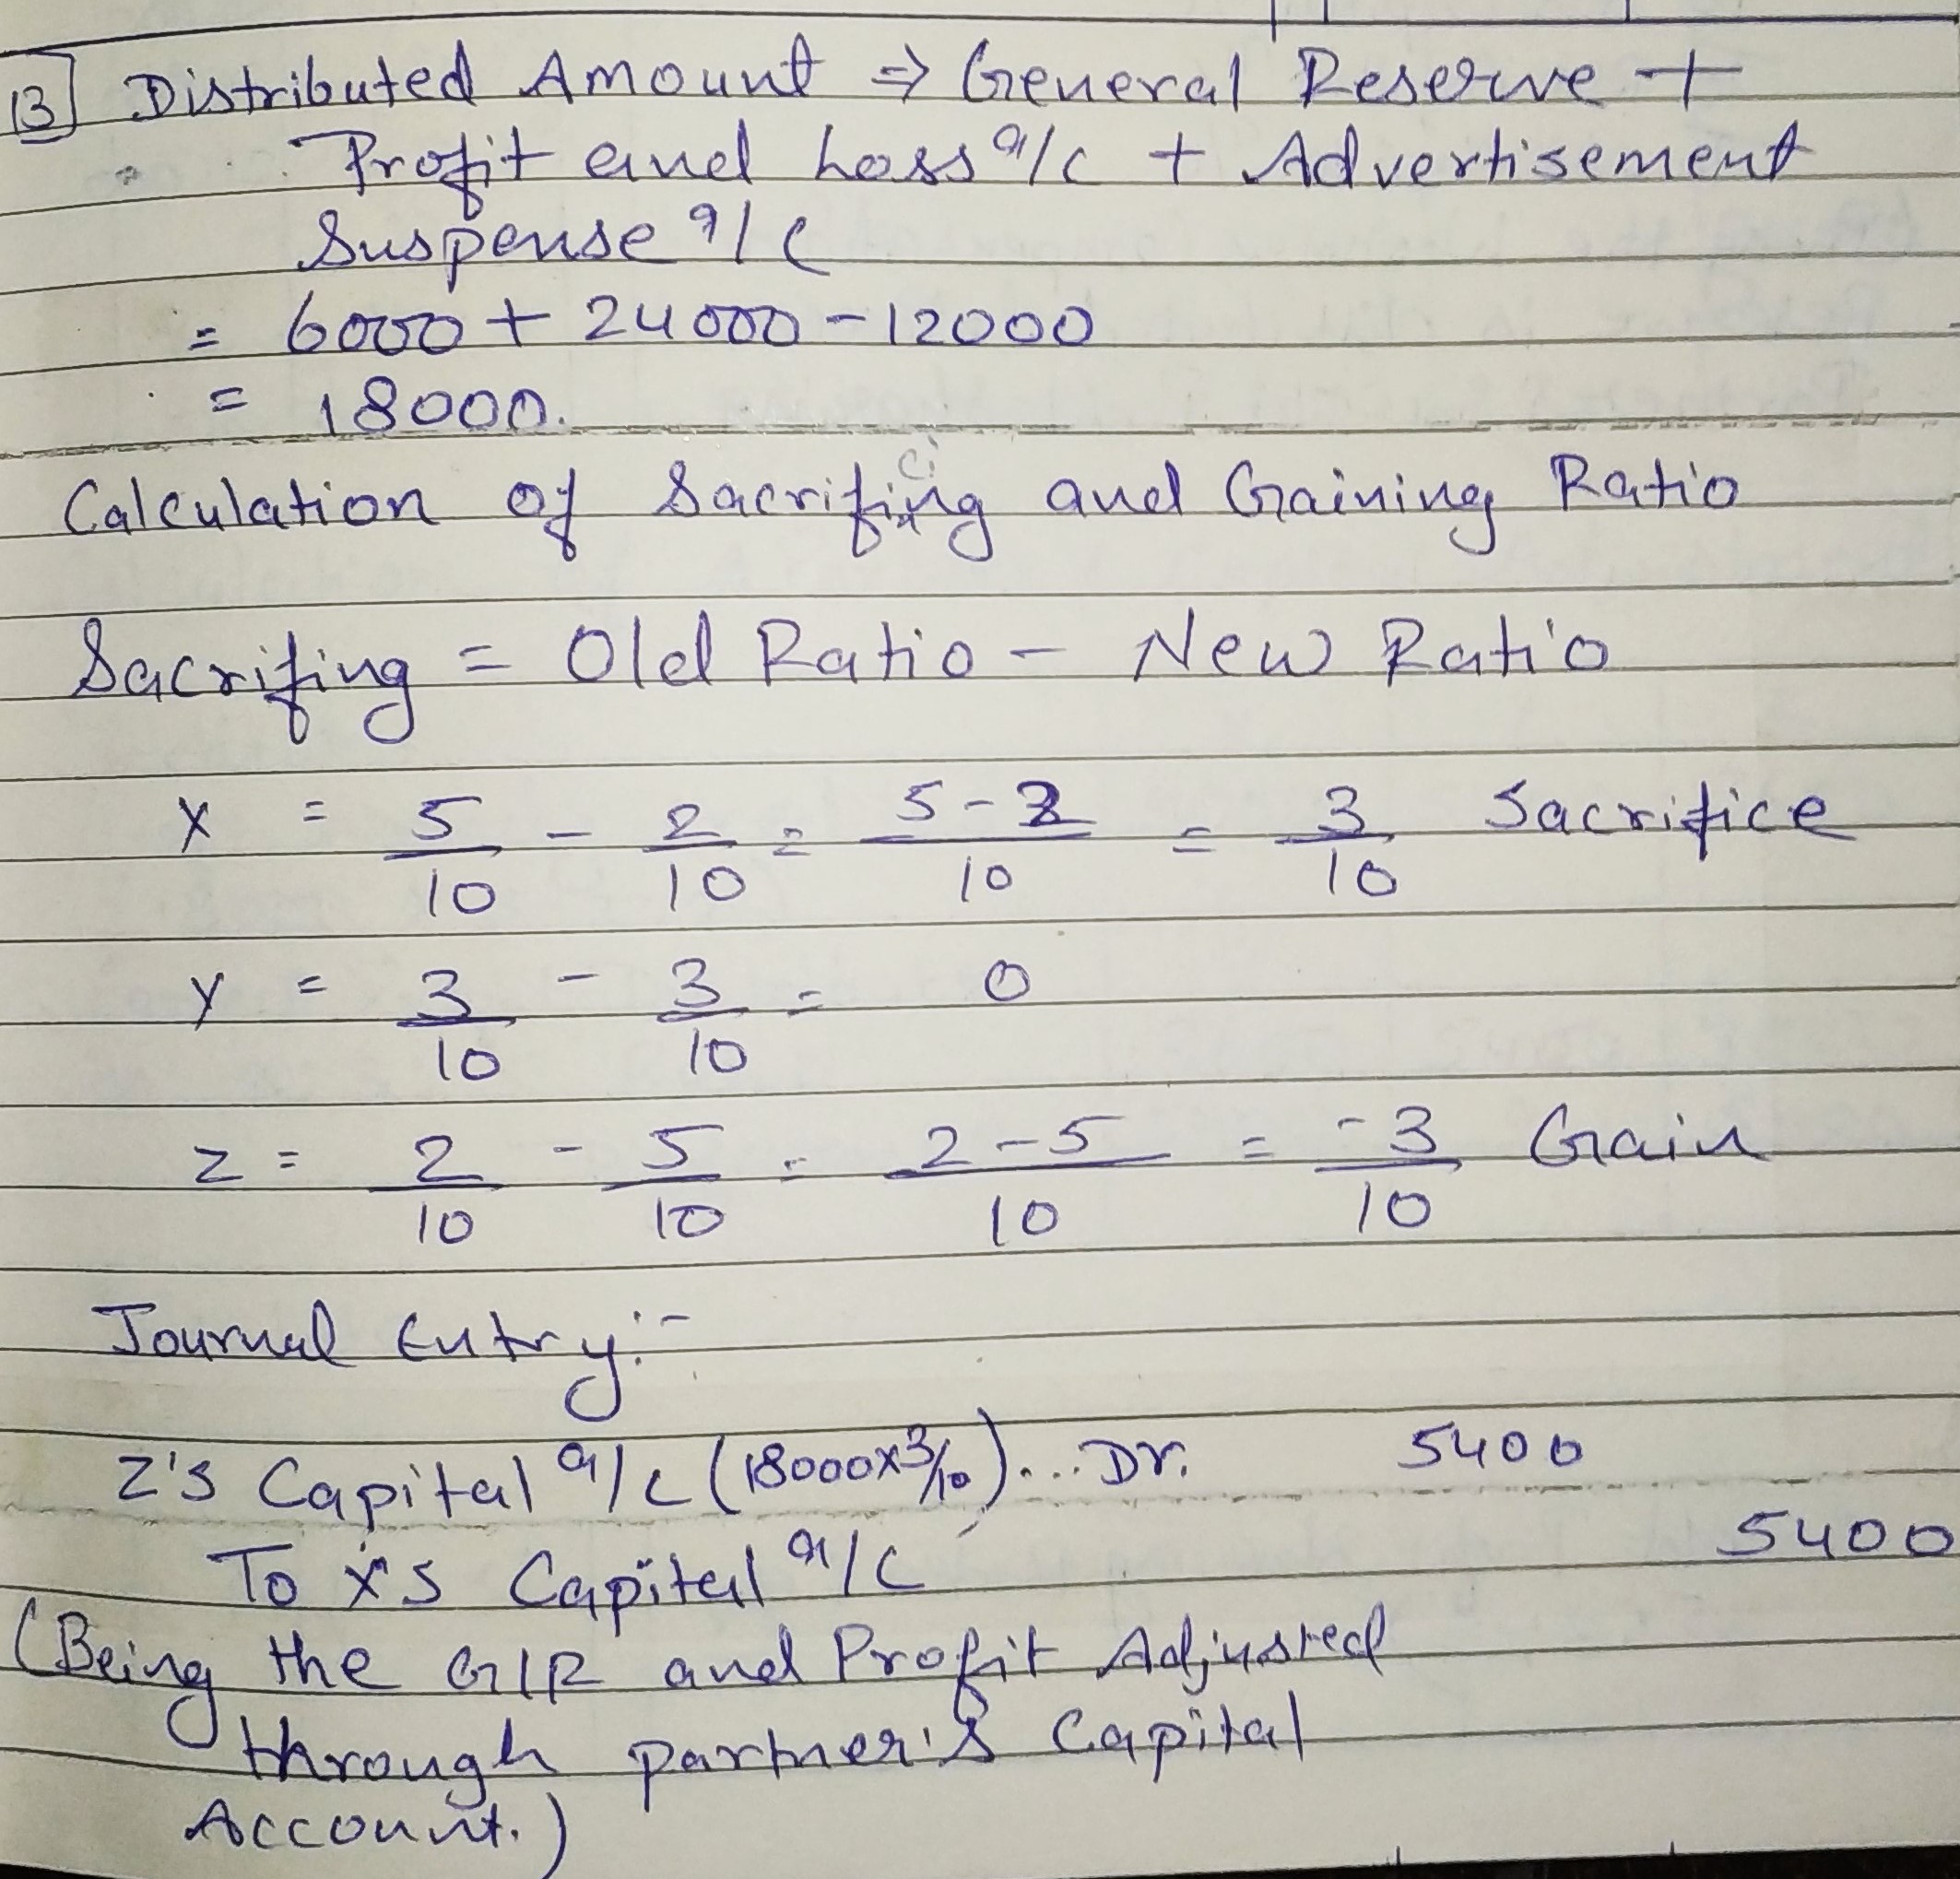 13 Distributed Amount ⇒ General Reserve +
Profit and Loss a/c + Advertisement
Suspense a/c
= 6000 + 24000 - 12000
= 18000.
Calculation of Sacrificing and Gaining Ratio
Sacrifing = Old Ratio - New Ratio
X = 5/10 - 2/10 = 5-2/10 = 3/10 Sacrifice
Y = 3/10 - 3/10 = 0
Z = 2/10 - 5/10 = 2-5/10 = -3/10 Gain
Journal Entry:-
Z's Capital a/c (18000x3/10)... Dr. 5400
To X's Capital a/c 5400
(Being the G/R and Profit Adjusted
through partner's Capital
Account.)